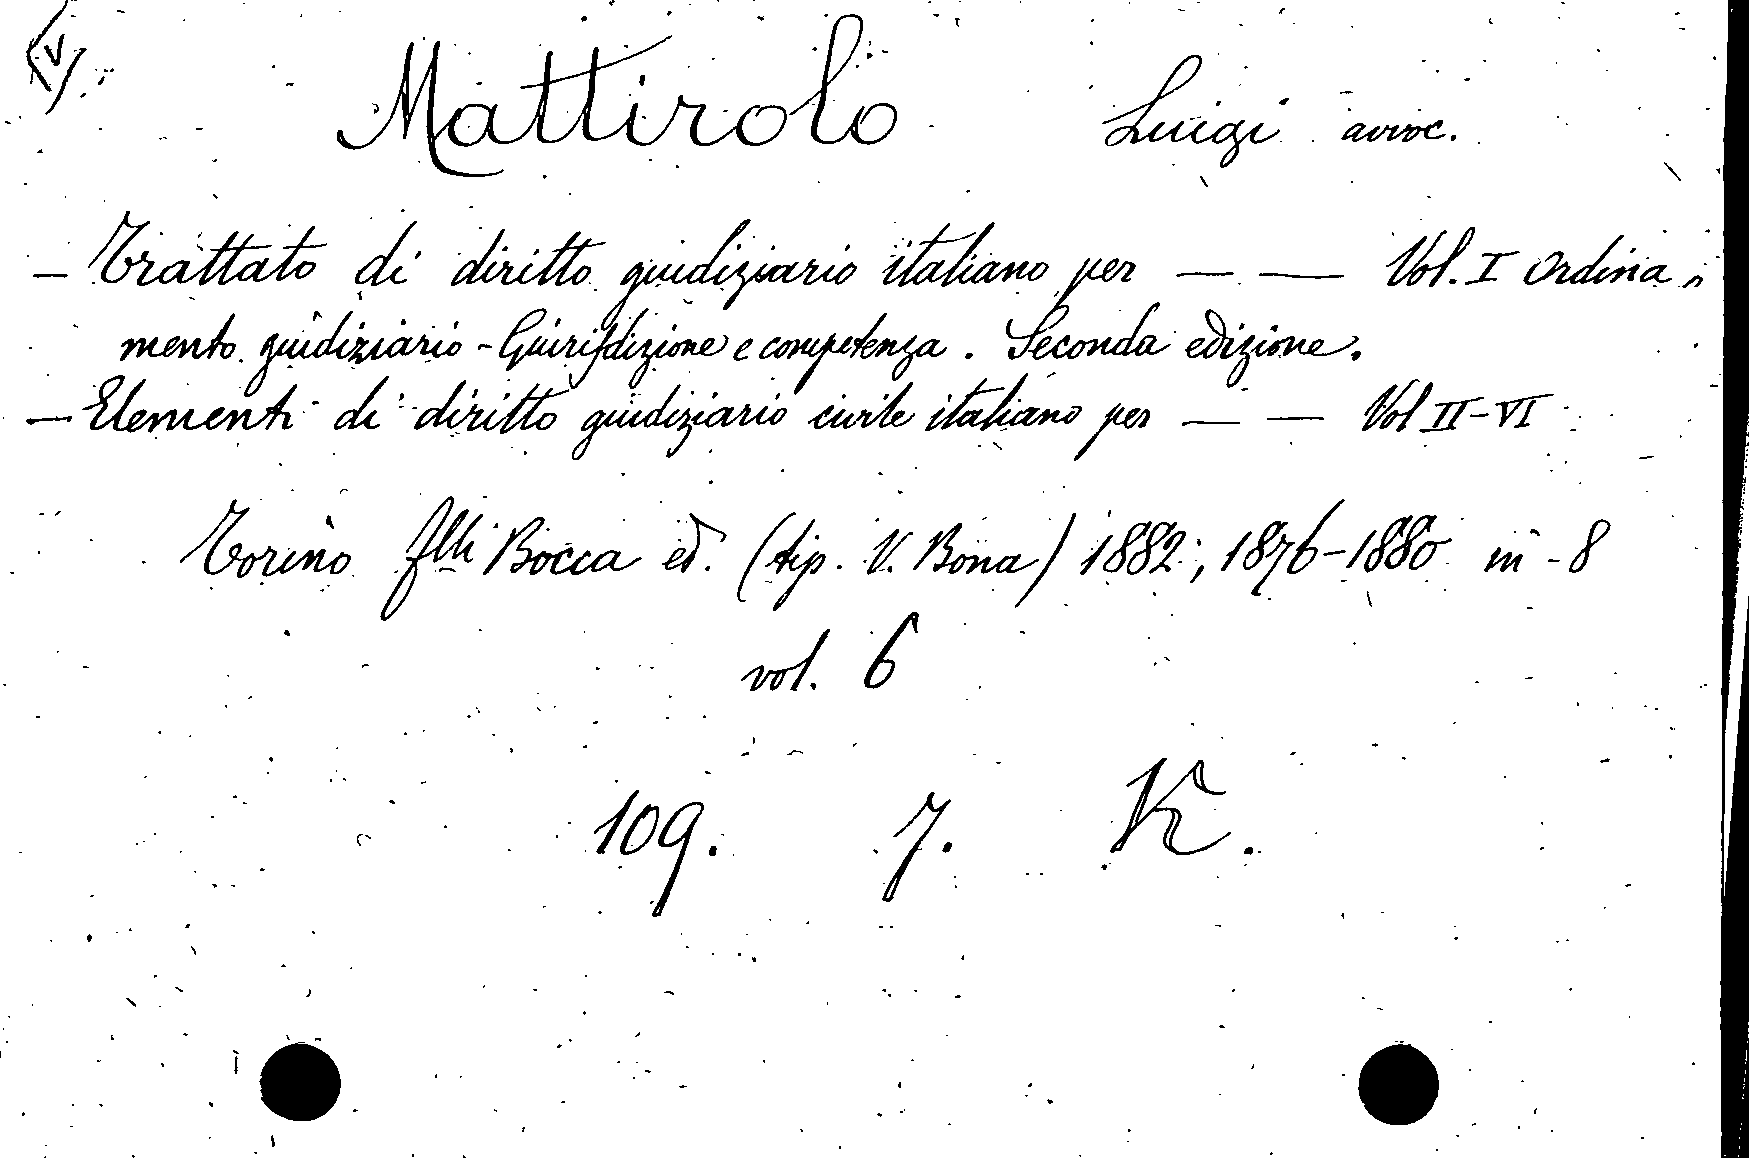 V
Mattirolo Luigi avvoc.
— Trattato di diritto giudiziario italiano per — — Vol. I Ordina-
mento giudiziario - Giurisdizione e competenza. Seconda edizione.
— Elementi di diritto giudiziario civile italiano per — — Vol II-VI
Torino flli Bocca ed. (tip. V. Bona) 1882; 1876-1880 in-8
vol. 6
109. 7. K.